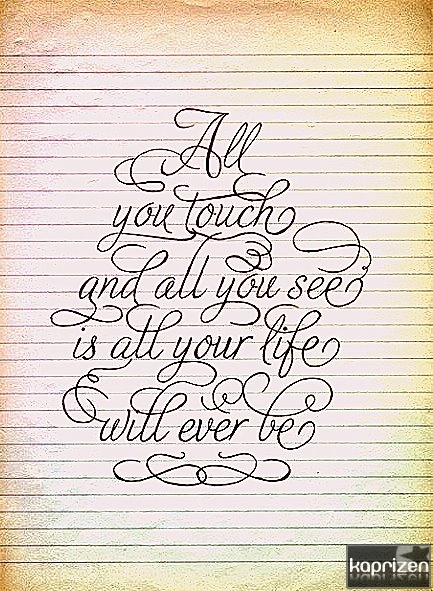 All
you touch
and all you see
is all your life
will ever be
kaprizen